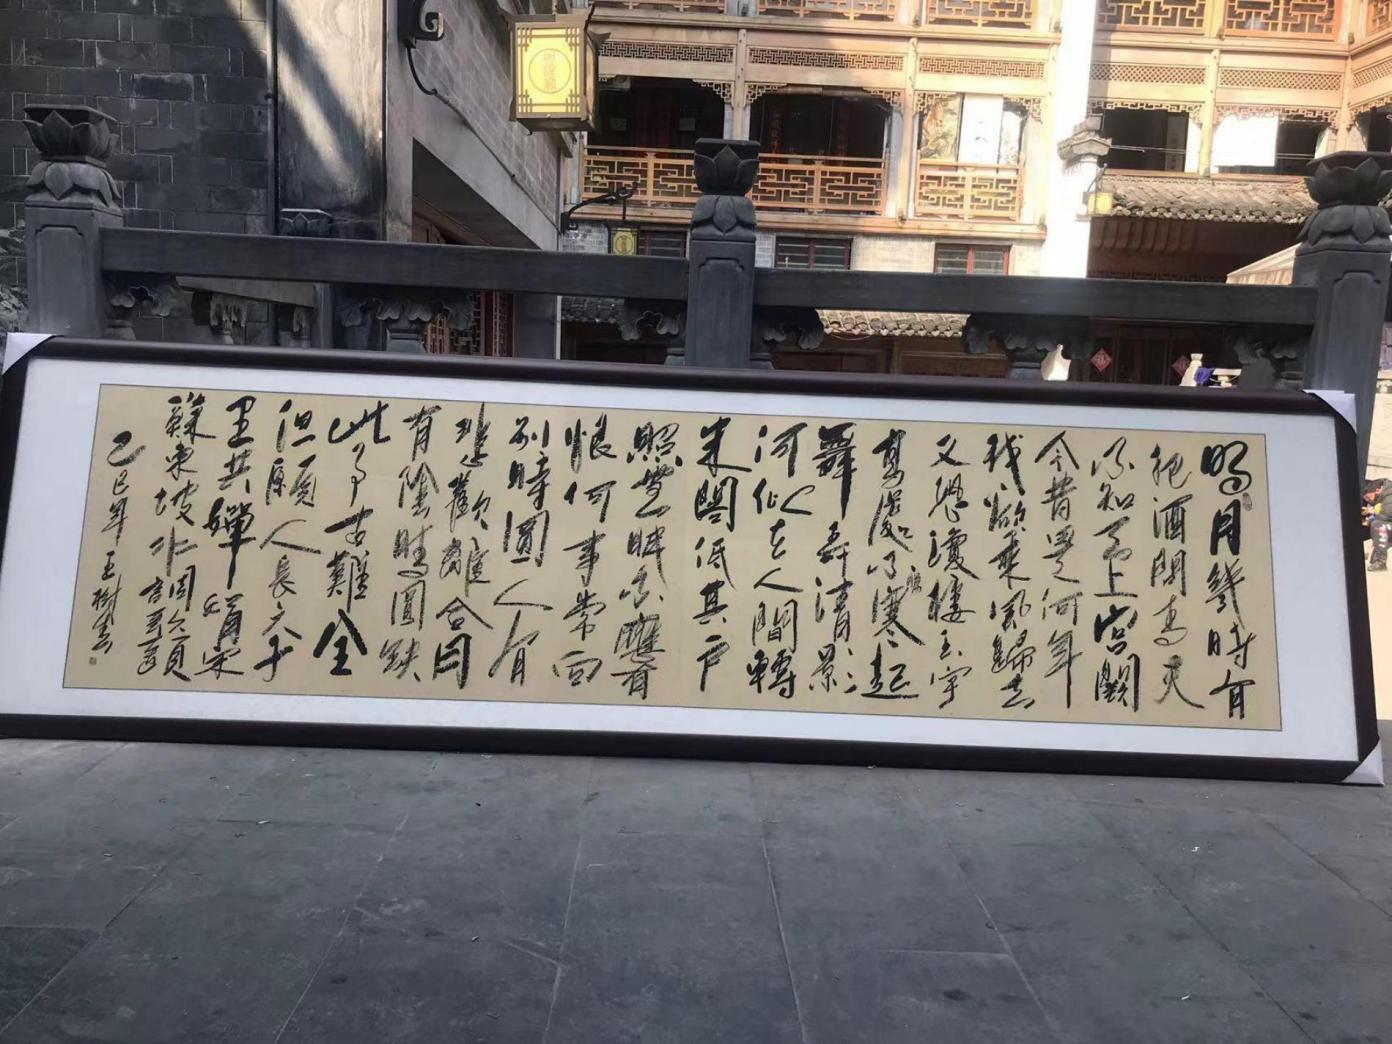 明月幾時有
把酒問青天
不知天上宮闕
今昔是何年
我欲乘風歸去
又恐瓊樓玉宇
高處不勝寒起
舞弄清影
何似在人間轉
朱閣低其戶
照無眠不應有
恨何事常向
別時圓人有
悲歡離合月
有陰晴圓缺
此事古難全
但願人長久千
里共嬋娟宋
蘇東坡水調歌頭
乙巳年 王樹